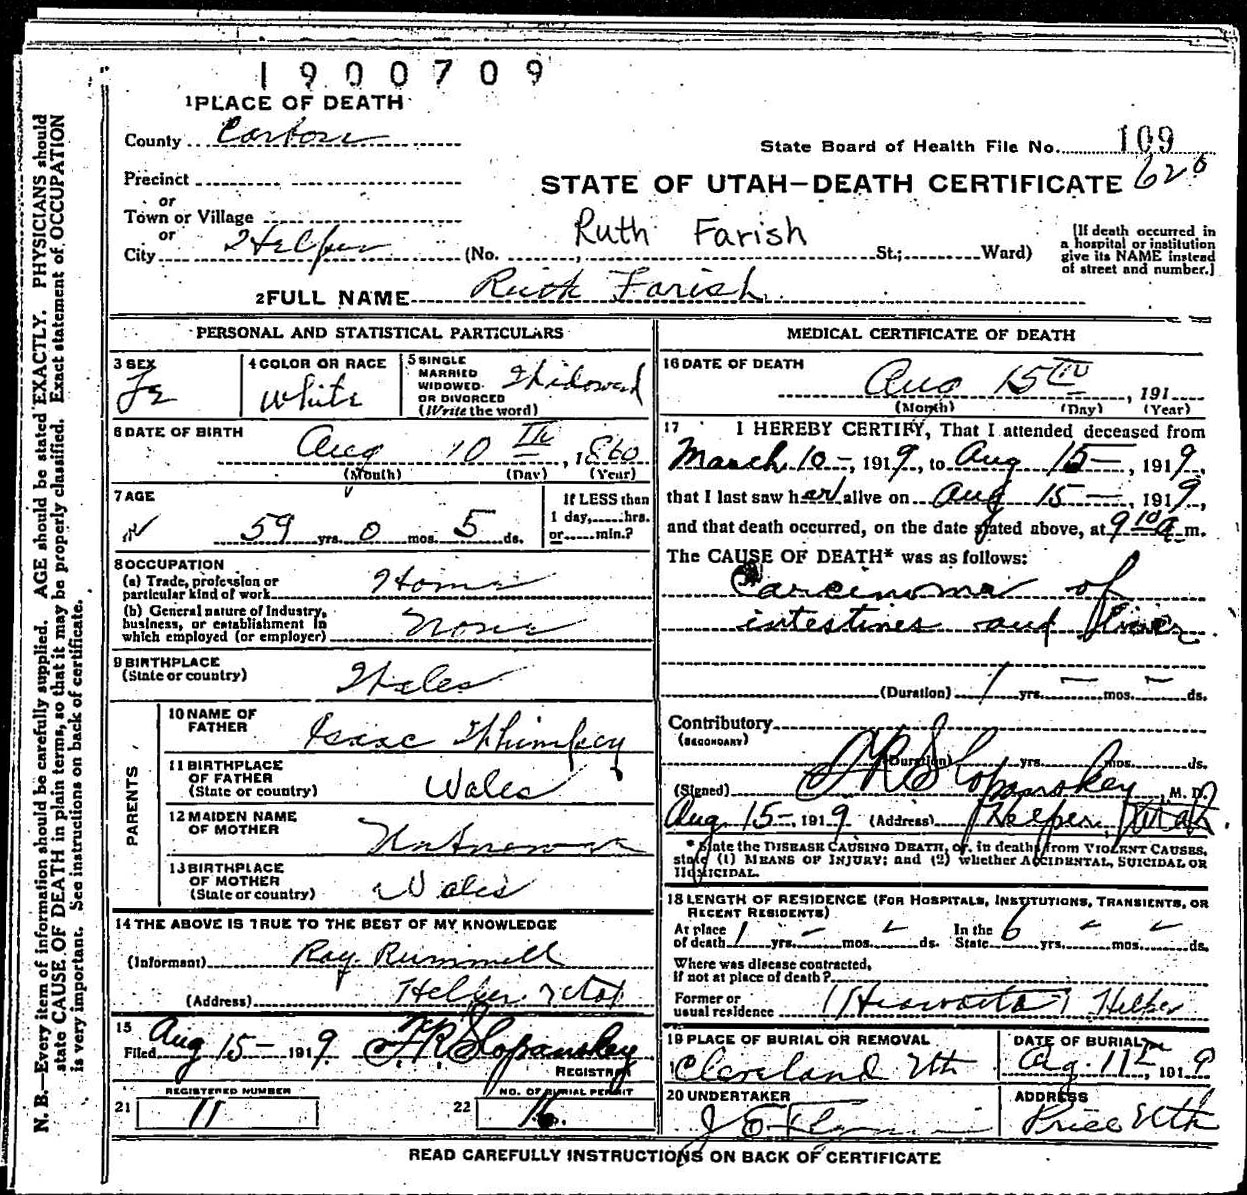 N. B.—Every item of information should be carefully supplied. AGE should be stated EXACTLY. PHYSICIANS should
state CAUSE OF DEATH in plain terms, so that it may be properly classified. Exact statement of OCCUPATION
is very important. See instructions on back of certificate.
1900709
1 PLACE OF DEATH
County Carbon
State Board of Health File No. 109
Precinct
STATE OF UTAH—DEATH CERTIFICATE 620
or
Town or Village
or
City Helper (No. St.; Ward)
Ruth Farish
[If death occurred in
a hospital or institution
give its NAME instead
of street and number.]
2 FULL NAME Ruth Farish
PERSONAL AND STATISTICAL PARTICULARS
3 SEX
Fe
4 COLOR OR RACE
White
5 SINGLE
MARRIED
WIDOWED
OR DIVORCED
(Write the word)
Widowed
6 DATE OF BIRTH
Aug 10th, 1860
(Month) (Day) (Year)
7 AGE
59 yrs. 0 mos. 5 ds.
If LESS than
1 day,.....hrs.
or.....min.?
8 OCCUPATION
(a) Trade, profession or
particular kind of work Home
(b) General nature of Industry,
business, or establishment in
which employed (or employer) None
9 BIRTHPLACE
(State or country) Wales
PARENTS
10 NAME OF
FATHER Isaac
11 BIRTHPLACE
OF FATHER
(State or country) Wales
12 MAIDEN NAME
OF MOTHER Unknown
13 BIRTHPLACE
OF MOTHER
(State or country) Wales
14 THE ABOVE IS TRUE TO THE BEST OF MY KNOWLEDGE
(Informant) Ray Rummell
(Address) Helper Utah
15
Filed Aug 15—1919 F.R. Slopanskey
REGISTRAR
REGISTERED NUMBER
21 11
NO. OF BURIAL PERMIT
22 16
MEDICAL CERTIFICATE OF DEATH
16 DATE OF DEATH
Aug 15th, 191
(Month) (Day) (Year)
17 I HEREBY CERTIFY, That I attended deceased from
March 10—, 1919, to Aug 15—, 1919,
that I last saw her alive on Aug 15—, 1919,
and that death occurred, on the date stated above, at 9 10 a m.
The CAUSE OF DEATH* was as follows:
Carcinoma of
intestines and liver
(Duration) 1 yrs. — mos. — ds.
Contributory
(SECONDARY)
(Duration) yrs. mos. ds.
(Signed) F R Slopanskey, M. D.
Aug 15—, 1919 (Address) Helper, Utah.
*State the DISEASE CAUSING DEATH, or, in deaths from VIOLENT CAUSES,
state (1) MEANS OF INJURY; and (2) whether ACCIDENTAL, SUICIDAL OR
HOMICIDAL.
18 LENGTH OF RESIDENCE (FOR HOSPITALS, INSTITUTIONS, TRANSIENTS, OR
RECENT RESIDENTS)
At place
of death 1 yrs. — mos. — ds.
In the
State 6 yrs. — mos. — ds.
Where was disease contracted,
if not at place of death?
Former or
usual residence (Hiawatha) Helper
19 PLACE OF BURIAL OR REMOVAL
Cleveland Uth
DATE OF BURIAL
Ag. 11th, 1919
20 UNDERTAKER
ADDRESS
Price Uth
READ CAREFULLY INSTRUCTIONS ON BACK OF CERTIFICATE